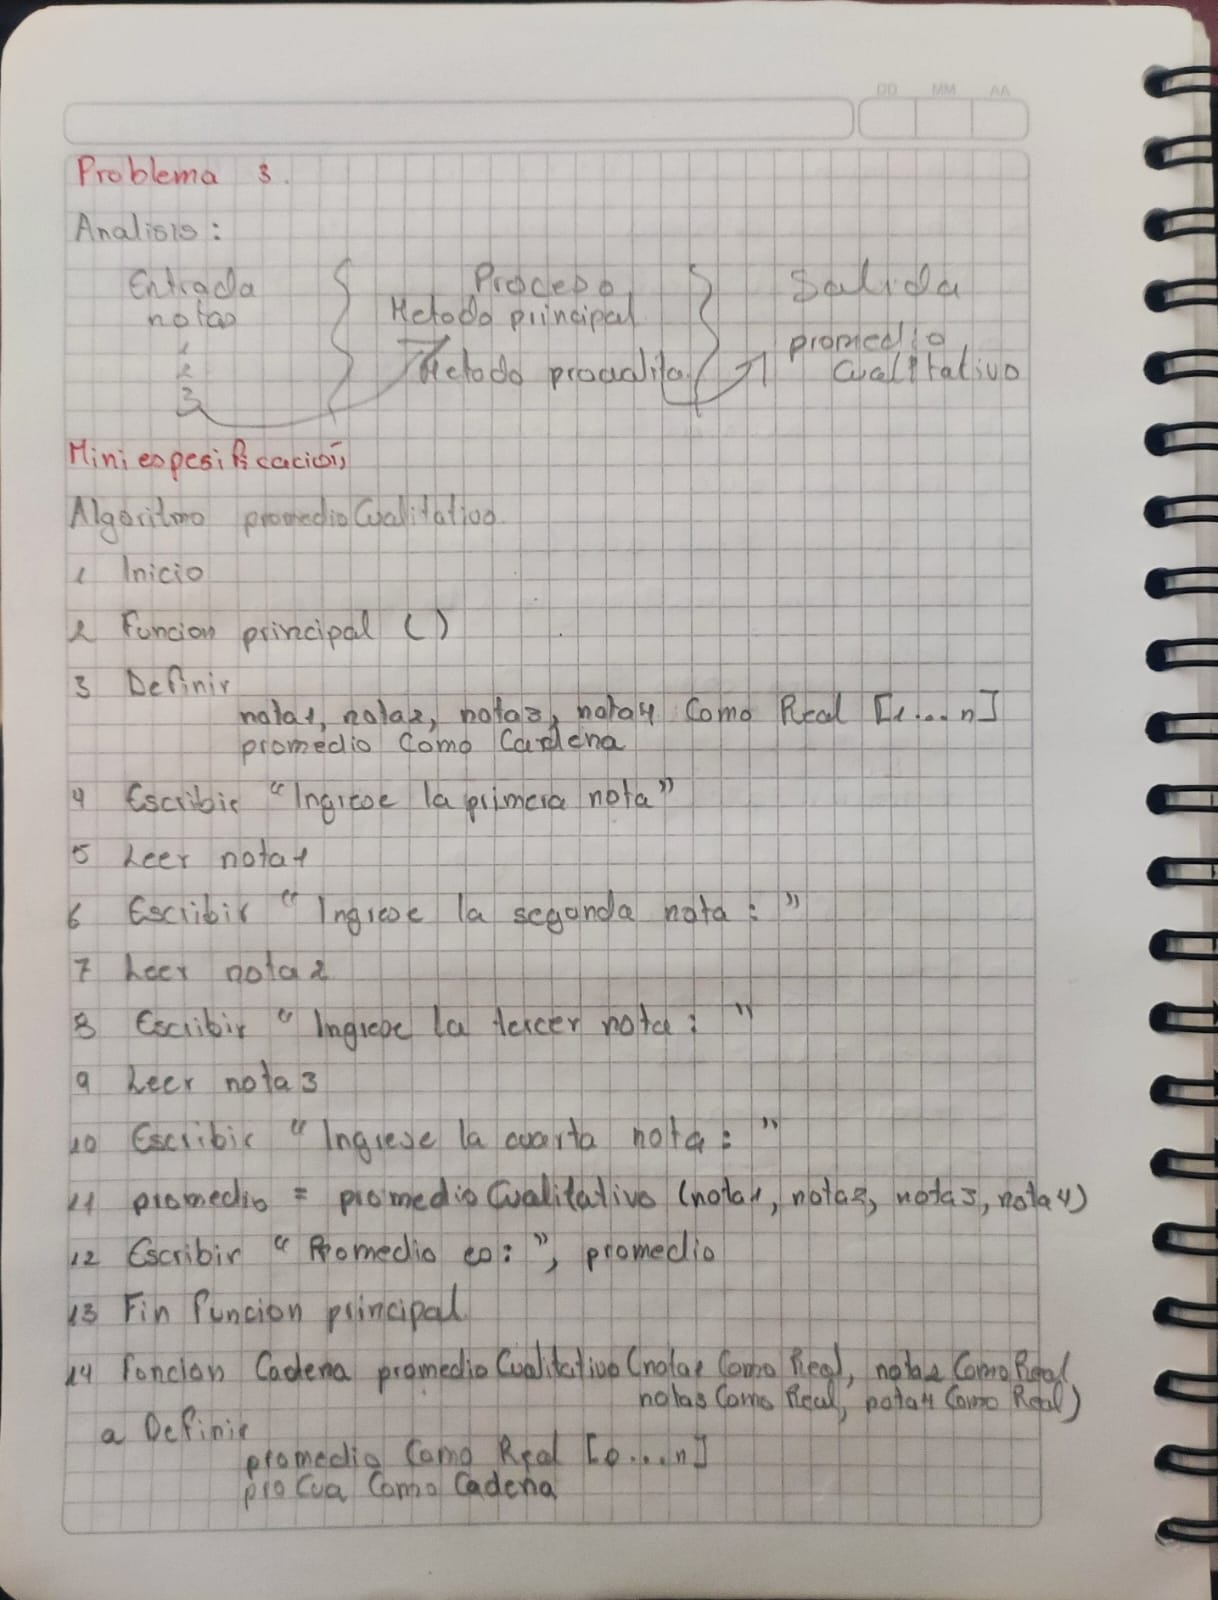 DD MM AA
Problema 3.
Analisis:
Entrada Proceso Salida
notas Metodo principal
1 promedio
2 Metodo procualita Cualitativo
3
Mini espesificación
Algoritmo promedioCualitativo.
1 Inicio
2 Funcion principal ( )
3 Definir
nota1, nota2, nota3, nota4 Como Real [1...n]
promedio Como Cadena
4 Escribir "Ingrese la primera nota"
5 Leer nota1
6 Escribir "Ingrese la segonda nota: "
7 Leer nota2
8 Escribir "Ingrese la tercer nota: "
9 Leer nota3
10 Escribir "Ingrese la cuarta nota: "
11 promedio = promedioCualitativo (nota1, nota2, nota3, nota4)
12 Escribir "Promedio es: ", promedio
13 Fin funcion principal
14 Foncion Cadena promedioCualitativo (nota1 Como Real, nota2 Como Real
nota3 Como Real, nota4 Como Real)
a Definir
promedio Como Real [0...n]
proCua Como Cadena